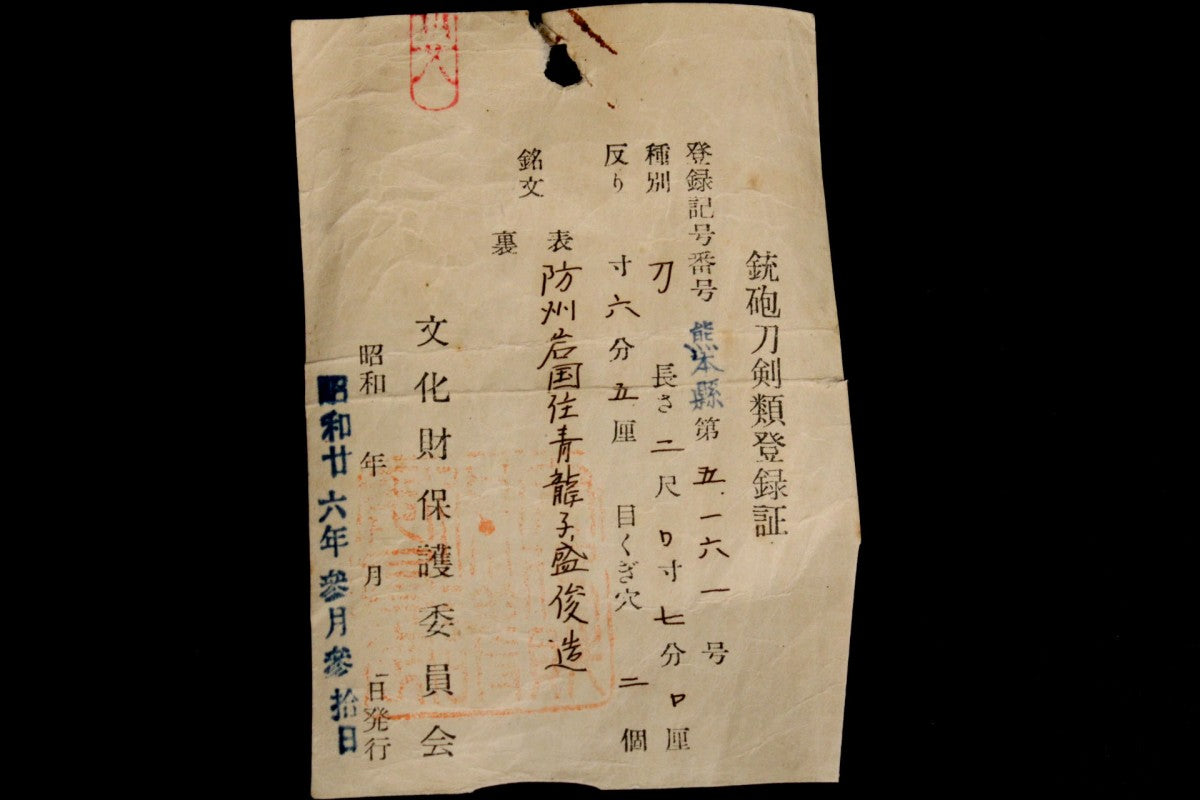 銃砲刀剣類登録証
登録記号番号 熊本縣 第五一六一号
種別 刀 長さ 二尺 〇寸 七分 〇厘
反り 寸 六分 五厘 目くぎ穴 二個
銘文 表 防州岩国住青龍子盛俊造
裏
文化財保護委員会
昭和 年 月 日発行
昭和廿六年参月参拾日